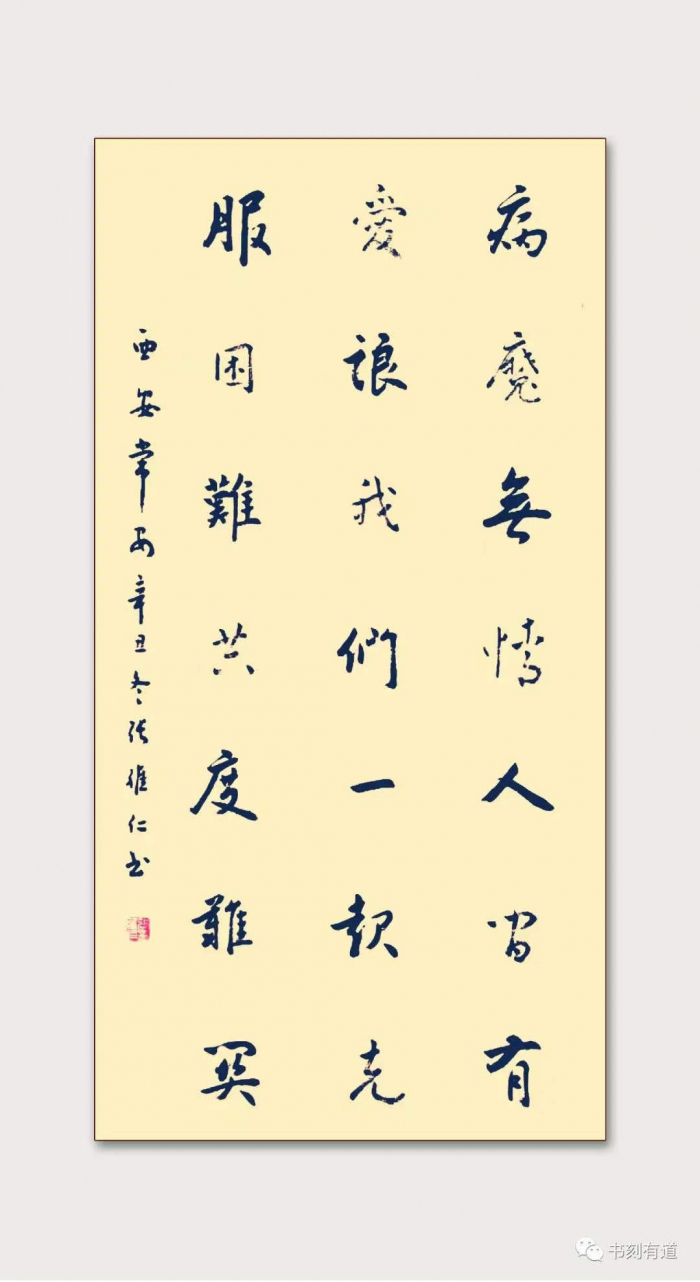 病魔無情人間有
愛讓我們一起克
服困難共度難関
西安常安辛丑冬張維仁書
书刻有道